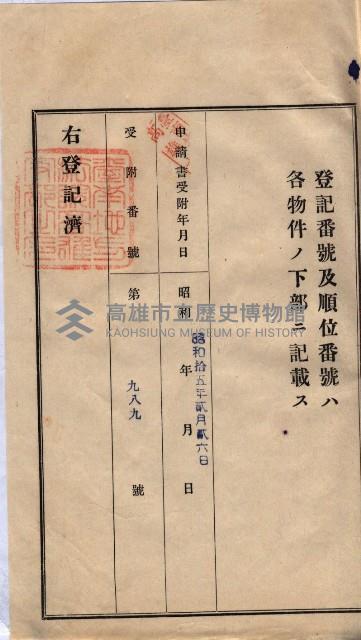 登記番號及順位番號ハ
各物件ノ下部ニ記載ス
申請書受附年月日
昭和 年 月 日
昭和拾五年貳月貳六日
受附番號
第 九八九 號
右登記濟
高雄市立歷史博物館
KAOHSIUNG MUSEUM OF HISTORY